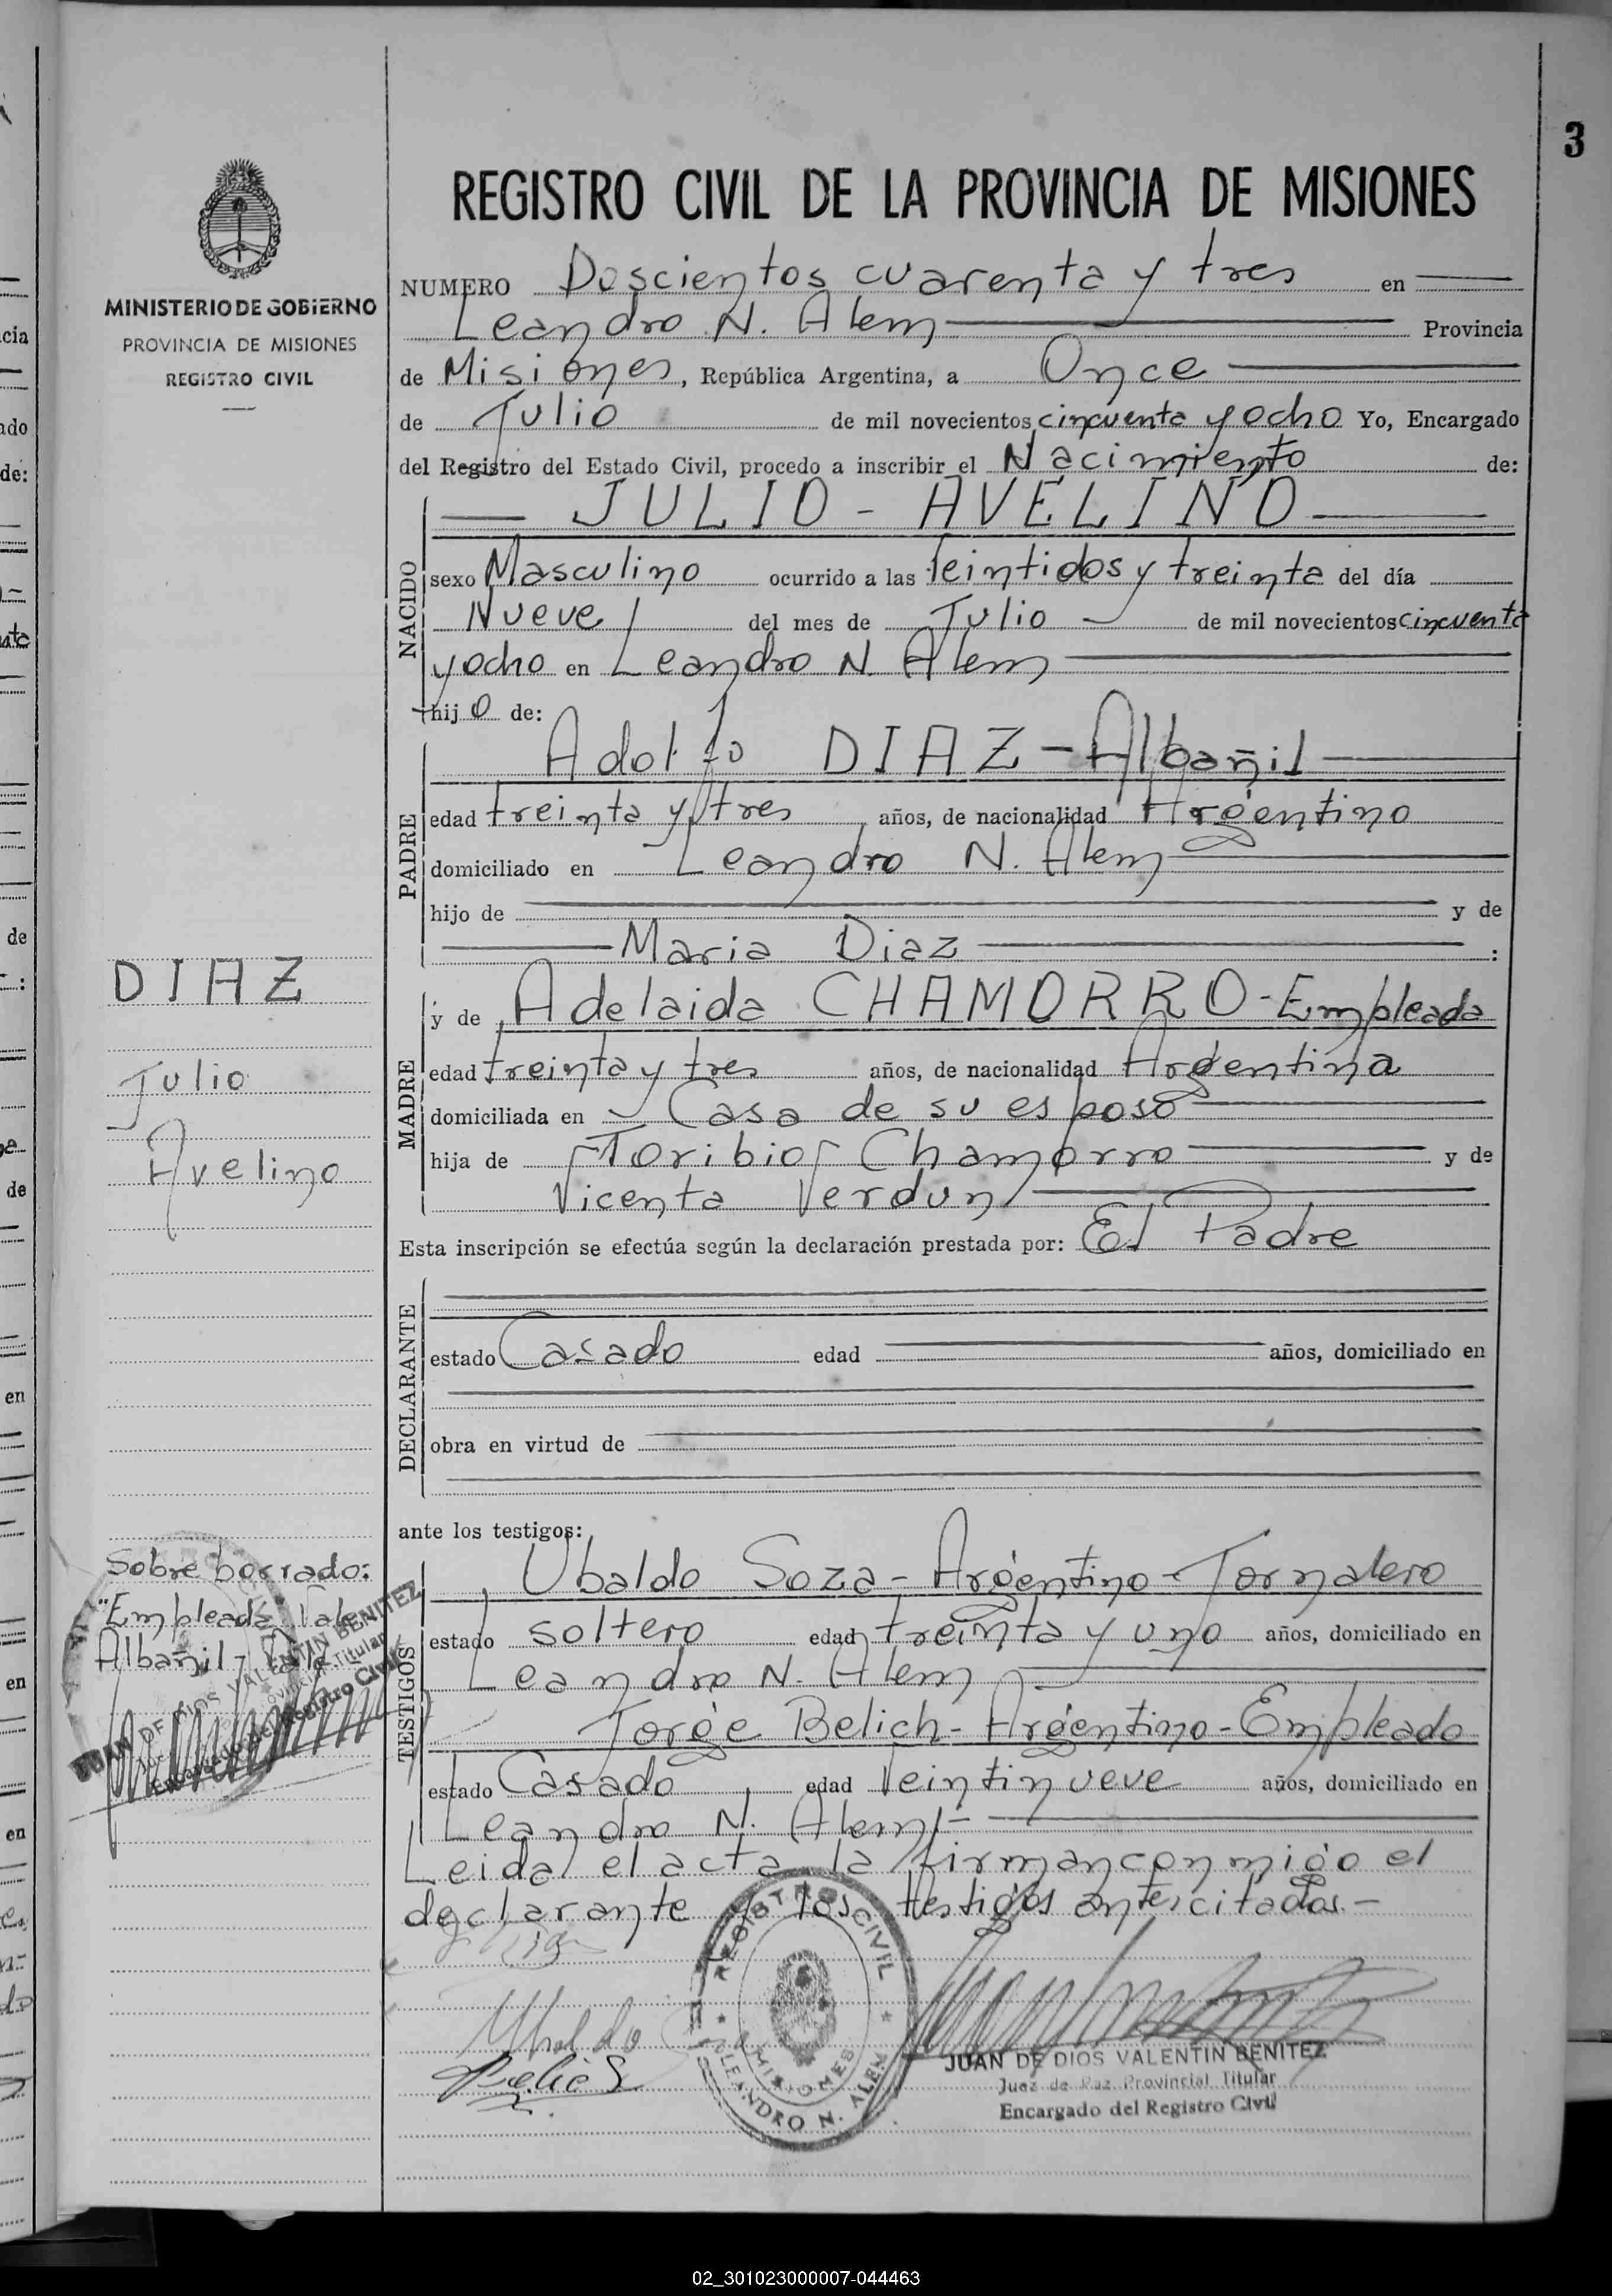 3
REGISTRO CIVIL DE LA PROVINCIA DE MISIONES
MINISTERIO DE GOBIERNO
PROVINCIA DE MISIONES
REGISTRO CIVIL
NUMERO Doscientos cuarenta y tres en
Leandro N. Alem Provincia
de Misiones, República Argentina, a Once
de Julio de mil novecientos cincuenta y ocho Yo, Encargado
del Registro del Estado Civil, procedo a inscribir el Nacimiento de:
NACIDO
JULIO - AVELINO
sexo Masculino ocurrido a las Veintidos y treinta del día
Nueve del mes de Julio de mil novecientos cincuenta
y ocho en Leandro N. Alem
hijo de:
PADRE
Adolfo DIAZ - Albañil
edad treinta y tres años, de nacionalidad Argentino
domiciliado en Leandro N. Alem
hijo de y de
Maria Diaz :
MADRE
y de Adelaida CHAMORRO - Empleada
edad treinta y tres años, de nacionalidad Argentina
domiciliada en Casa de su esposo
hija de Toribio Chamorro y de
Vicenta Verdun
Esta inscripción se efectúa según la declaración prestada por: El Padre
DECLARANTE
estado Casado edad años, domiciliado en
obra en virtud de
ante los testigos:
TESTIGOS
Ubaldo Soza - Argentino - Jornalero
estado soltero edad treinta y uno años, domiciliado en
Leandro N. Alem
Jorge Belich - Argentino - Empleado
estado Casado edad Veintinueve años, domiciliado en
Leandro N. Alem -
Leida el acta la firman conmigo el
declarante y los testigos antes citados. -
DIAZ
Julio
Avelino
Sobre borrado:
"Empleada Vale
Albañil - Vale
JUAN DE DIOS VALENTIN BENITEZ
Encargado del Registro Civil
Ubaldo
REGISTRO CIVIL
MISIONES
LEANDRO N. ALEM
JUAN DE DIOS VALENTIN BENITEZ
Juez de Paz Provincial Titular
Encargado del Registro Civil
02_301023000007-044463